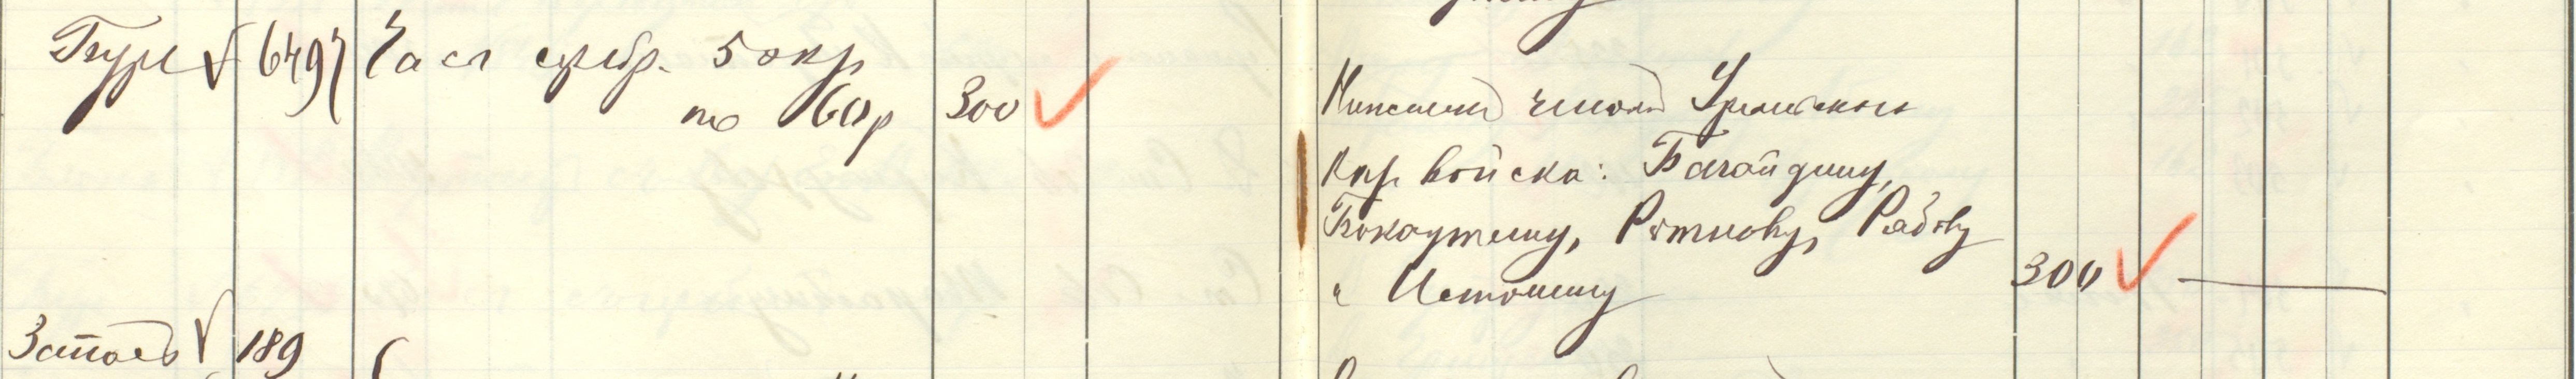 Бурх 6497 Часы серебр. 5 экз
по 60 р 300
Нижним чинам Уральскаго
каз. войска: Багайдину,
Бокаутину, Ротнову, Рябову
и Истомину 300
Запась 189